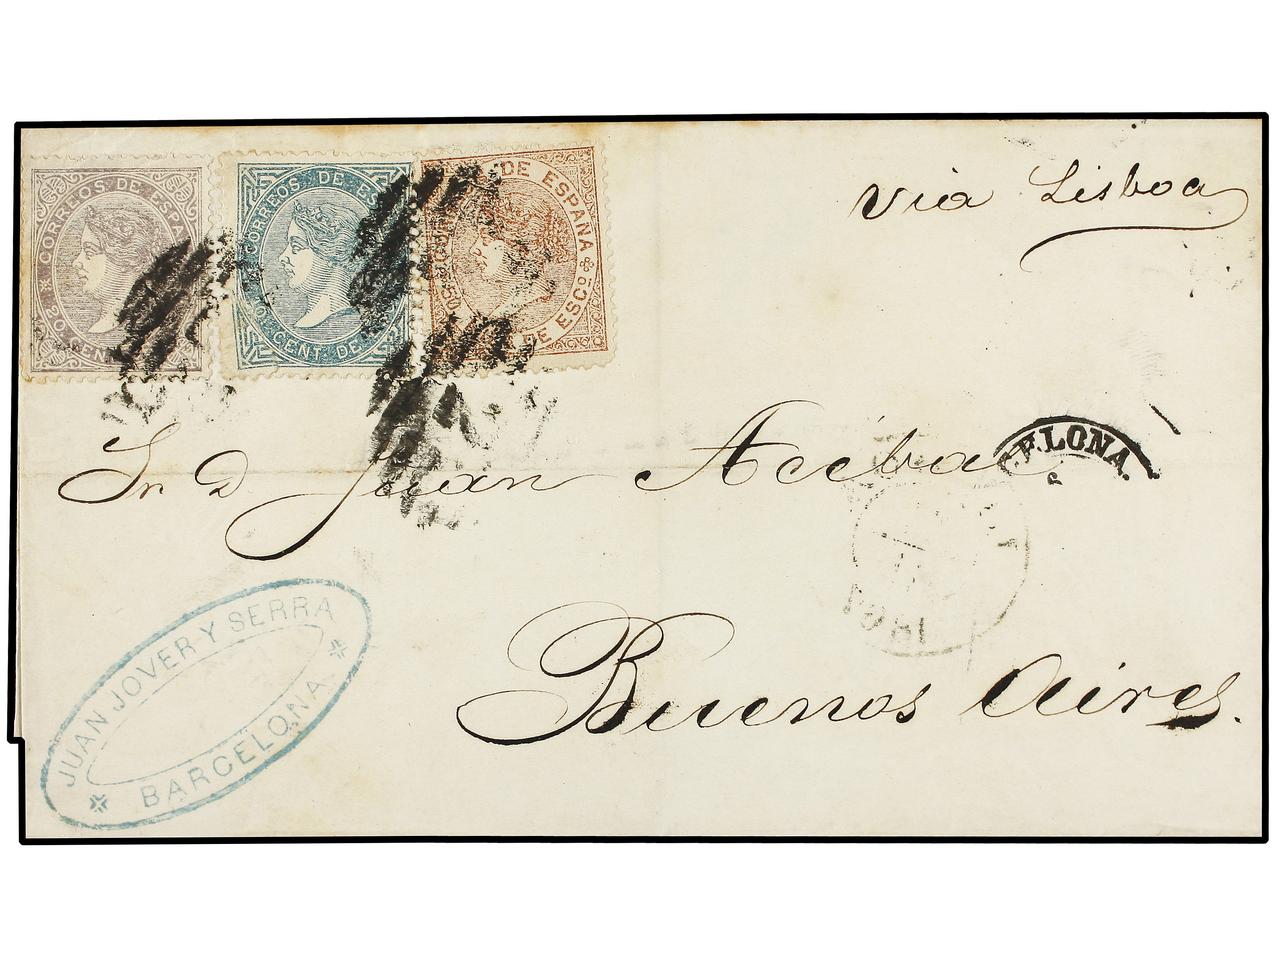 CORREOS DE ESPA
20 CENT
CORREOS DE ES
CENT. DE
DE ESPAÑA
DE ESCO
via Lisboa
LONA.
Sr. D. Juan Acébal
Buenos Aires.
JUAN JOVER Y SERRA
BARCELONA